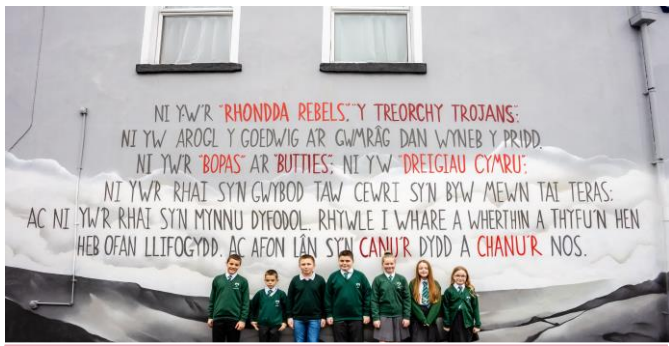 NI Y·W'R "RHONDDA REBELS," "Y TREORCHY TROJANS";
NI YW AROGL Y GOEDWIG A'R GWMRÂG DAN WYNEB Y PRIDD.
NI YW'R "BOPAS" A'R "BUTTIES"; NI YW "DREIGIAU CYMRU";
NI YW'R RHAI SY'N GWYBOD TAW CEWRI SY'N BYW MEWN TAI TERAS;
AC NI YW'R RHAI SY'N MYNNU DYFODOL. RHYWLE I WHARE A WHERTHIN A THYFU'N HEN
HEB OFAN LLIFOGYDD. AC AFON LÂN SY'N CANU'R DYDD A CHANU'R NOS.